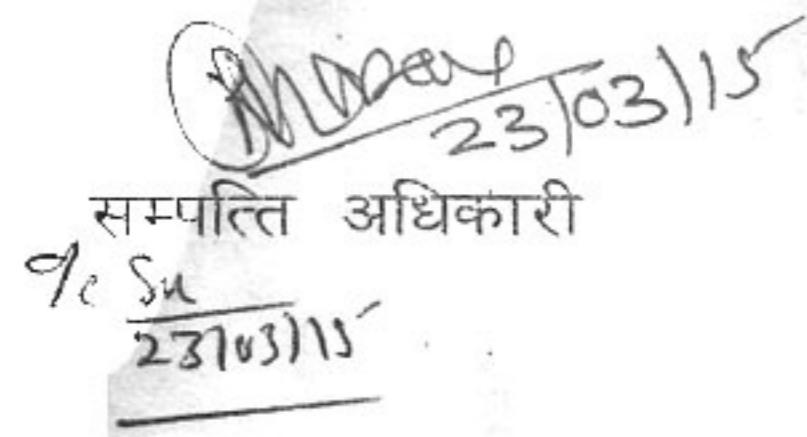 23/03/15
सम्पत्ति अधिकारी
23/03/15